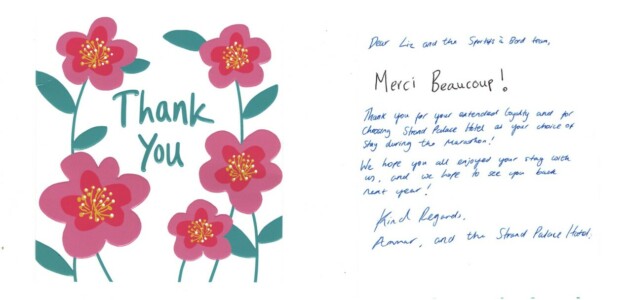 Thank
You
Dear Liz and the Sportifs à Bord team,
Merci Beaucoup!
Thank you for your extended loyalty and for
Choosing Strand Palace Hotel as your choice of
stay during the Marathon!
We hope you all enjoyed your stay with
us, and we hope to see you back
next year!
Kind Regards,
Ammar, and the Strand Palace Hotel.